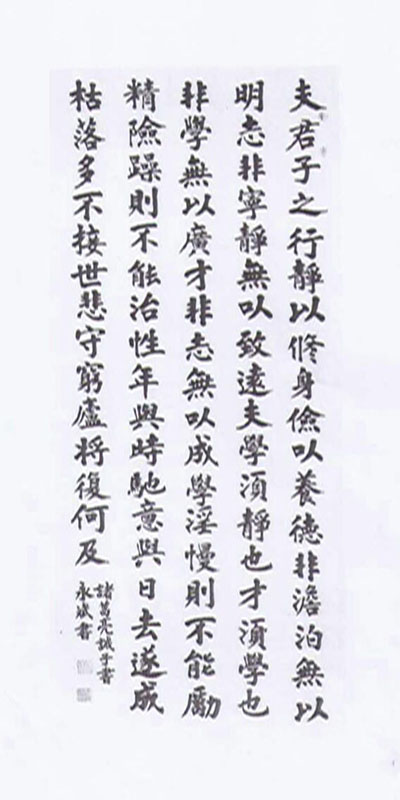 夫君子之行靜以修身儉以養德非澹泊無以
明志非寧靜無以致遠夫學須靜也才須學也
非學無以廣才非志無以成學淫慢則不能勵
精險躁則不能治性年與時馳意與日去遂成
枯落多不接世悲守窮廬將復何及
諸葛亮誡子書
永成書